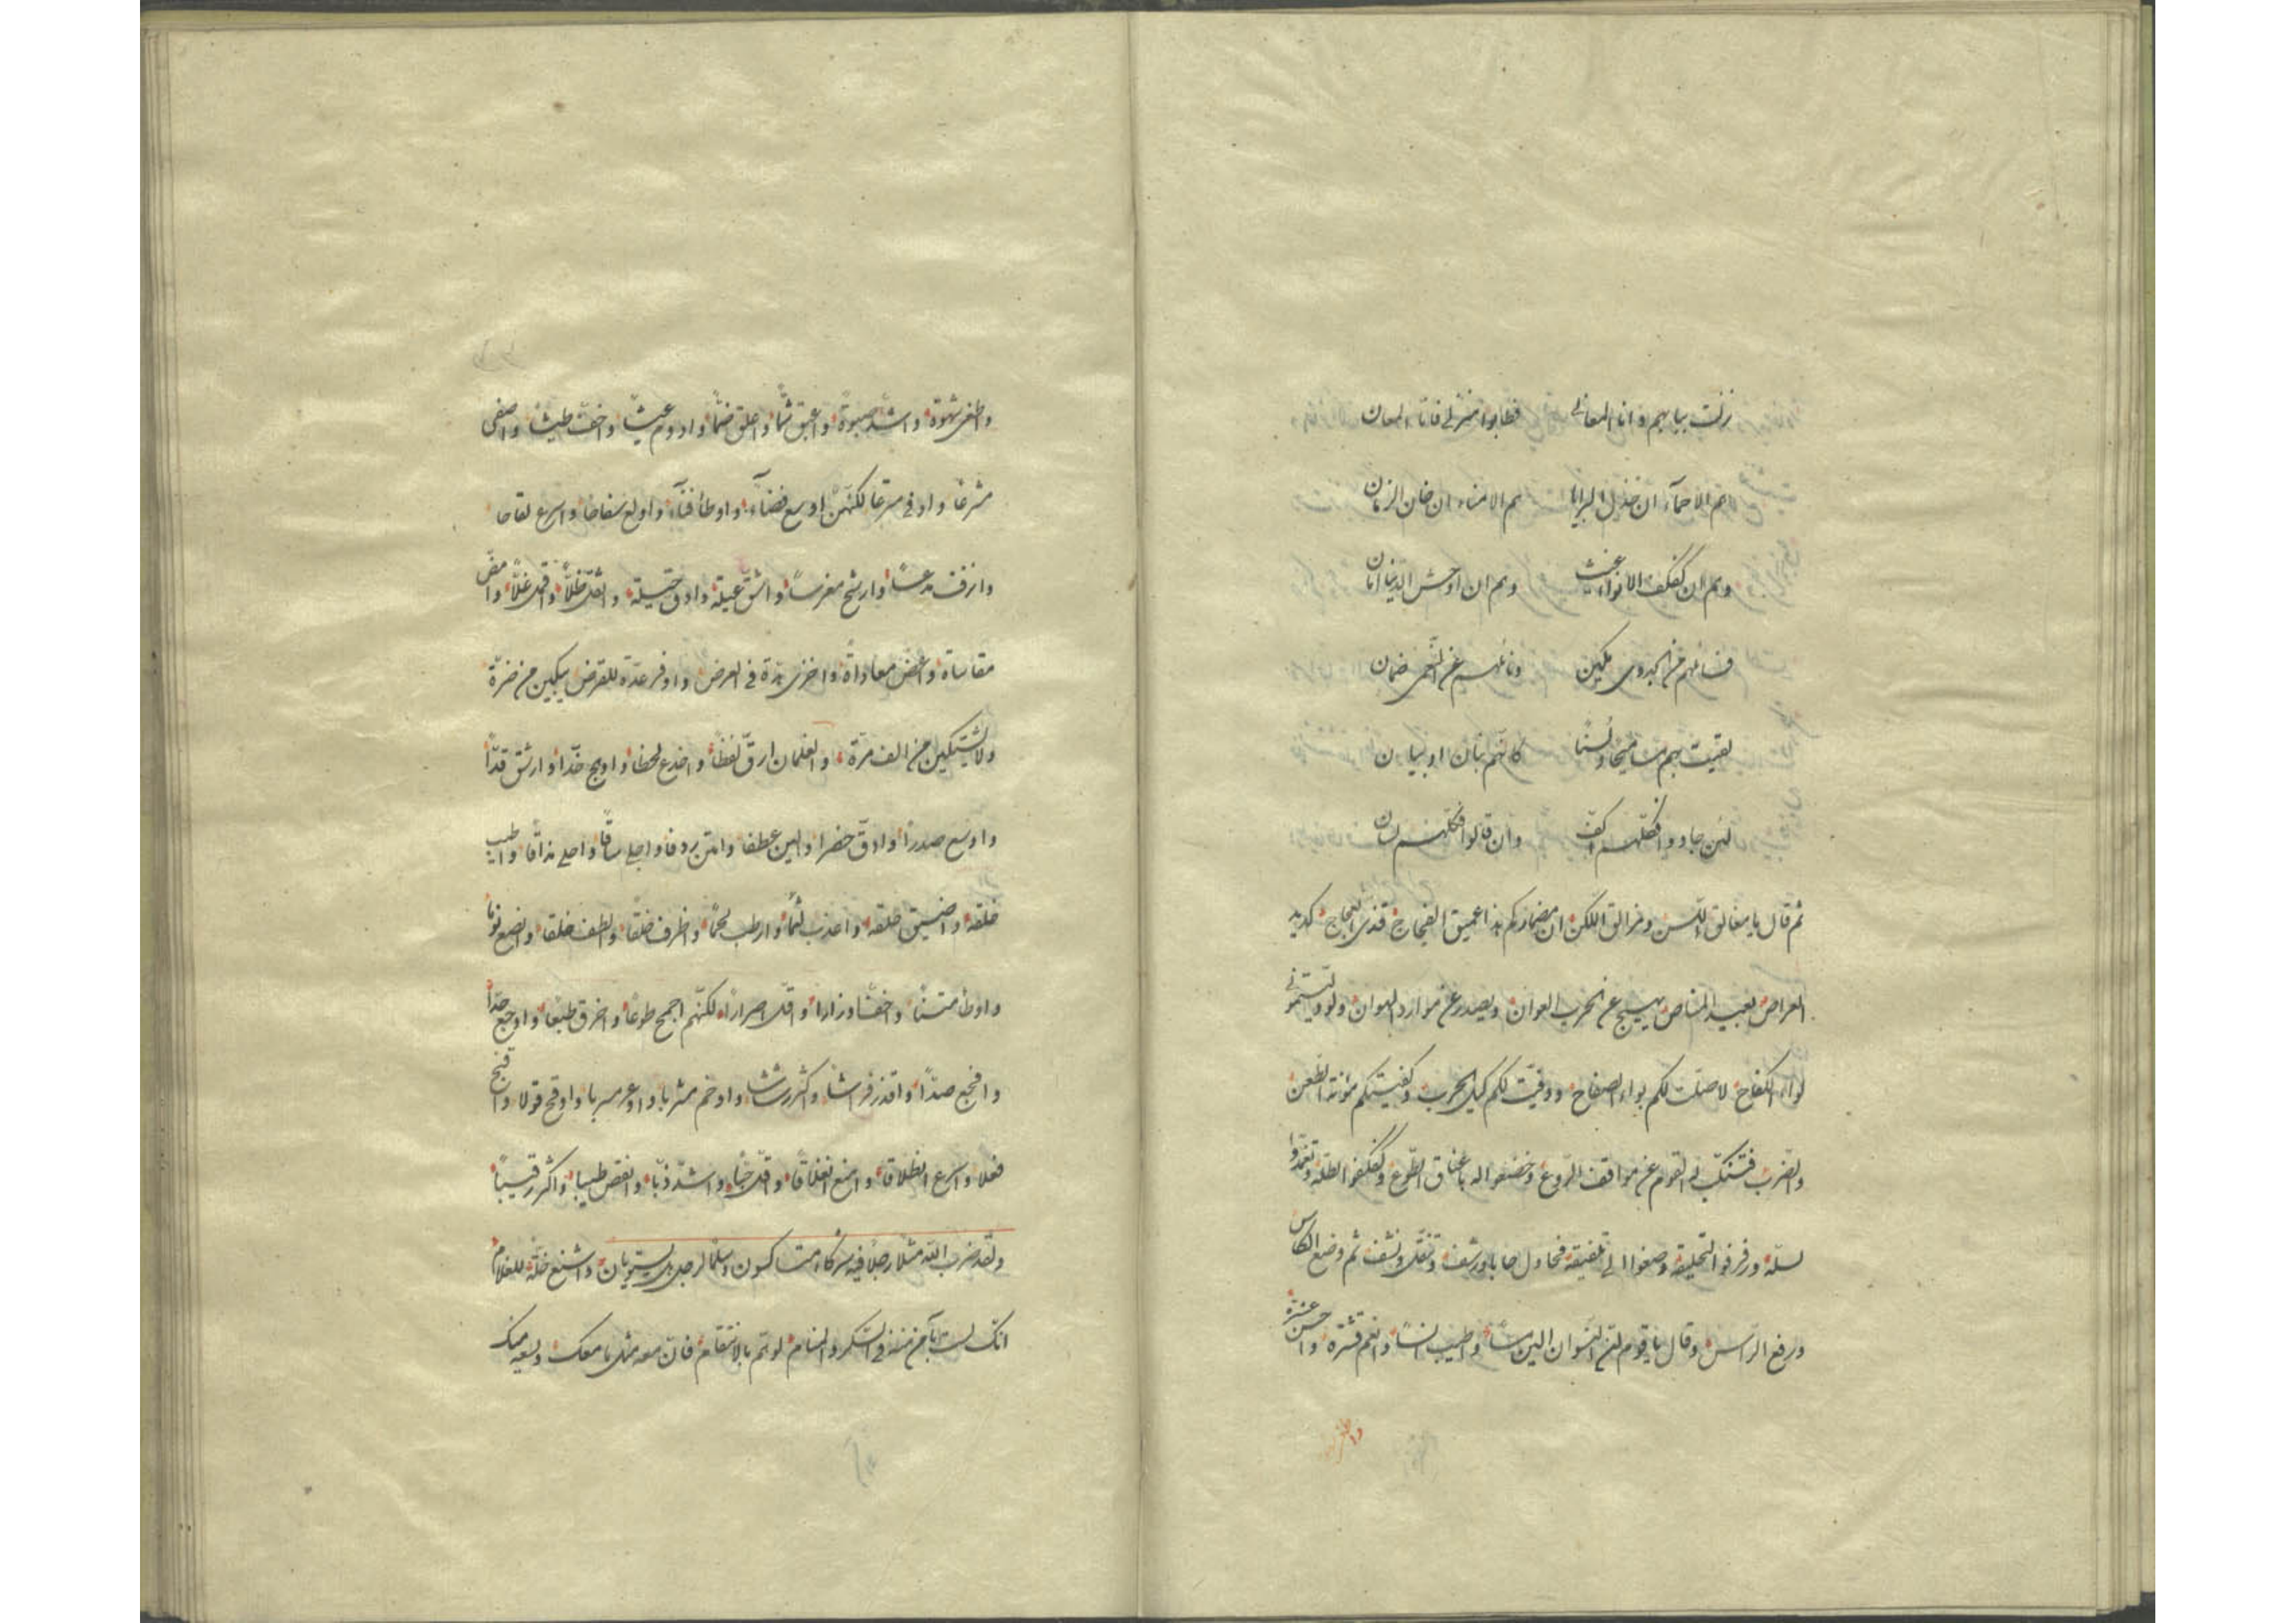 نزلت ببابهم وانا المعالي فطابوا منزلي فانا المعان
هم الاحماء ان خذل البرايا هم الامناء ان خان الزمان
وهم ان كفكف الانواء غيث وهم ان اوحش الدنيا امان
ضمان
لقيت بهم مساميحا ولسنا كانهم بنان او بيان
لئن جادوا فكلهم اكف وان قالوا فكلهم لسان
ثم قال يا مغالق اللسن ومزالق اللكن ان مضماركم هذا عميق الفجاج قذى العجاج كديد
العراص بعيد المناص يهيج عن الحرب العوان ويصدر عن موارد الهوان ولو وليتموني
لواء الكفاح لاصلت لكم بواء الصفاح ووفيت لكم كيل الحرب وكفيتكم مؤنة الطعن
والضرب فتنكب لي القوم عن مواقف الروع وخضعوا له باعناق الطوع وكفكفوا الظله وتغمدوا
لسله ورفرفوا لتحليقه وصغوا الى تلفيقه فحاول جابا ورشف وتنقل ونشف ثم وضع الكاس
ورفع الراس وقال يا قوم لئن النسوان الين مسا واطيب انسا وانعم قشرة واحسن عشرة
واطغى شهوة واشد صبوة واعبق شما واعلق ضما وادوم عيشا واخف طيشا واصفى
مشرعا واوفى مترعا لكنهن اوسع فضاء واوطأ فناء واولع سفاحا واسرع لقاحا
وانزف مدعسا وارشح مغرسا واشق عيلة وادق حيلة واثقل ظلا واقمل غلا وامض
مقاساة واعض معاداة واخزى بذة في العرض واوفر عدة للقرض يبكين من ضرة
ولا يشتكين من الف مرة والغلمان ارق لفظا واخدع لحظا وابهج خدا وارشق قدا
واوسع صدرا وادق خصرا والين عطفا وامتن ردفا واجلى ساقا واحلى مذاقا واطيب
خلقه واضيق حلقه واعذب لثما وارطب لحما واظرف خلقا والطف خلقا وانصع لونا
واوطأ متنا واخف اوزارا واقل اصرارا لكنهم اجمح طوعا واخرق طبعا واوجع جدا
وافجع صدا واقذر فراشا واكثر رشاشا واوخم مشربا واوعر مسربا واوقح قولا واقبح
فعلا واسرع انطلاقا وامنع انغلاقا واقل حبا واشد ذبا وانقص طيبا واكثر رقيبا
ولقد ضرب الله مثلا رجلا فيه شركاء متشاكسون وسلما لرجل هل يستويان واشنع خلة للغلام
انك لست بآمن منه في السكر والمنام لو هم بالانتقام فان معه مثل ما معك ويسعه منك